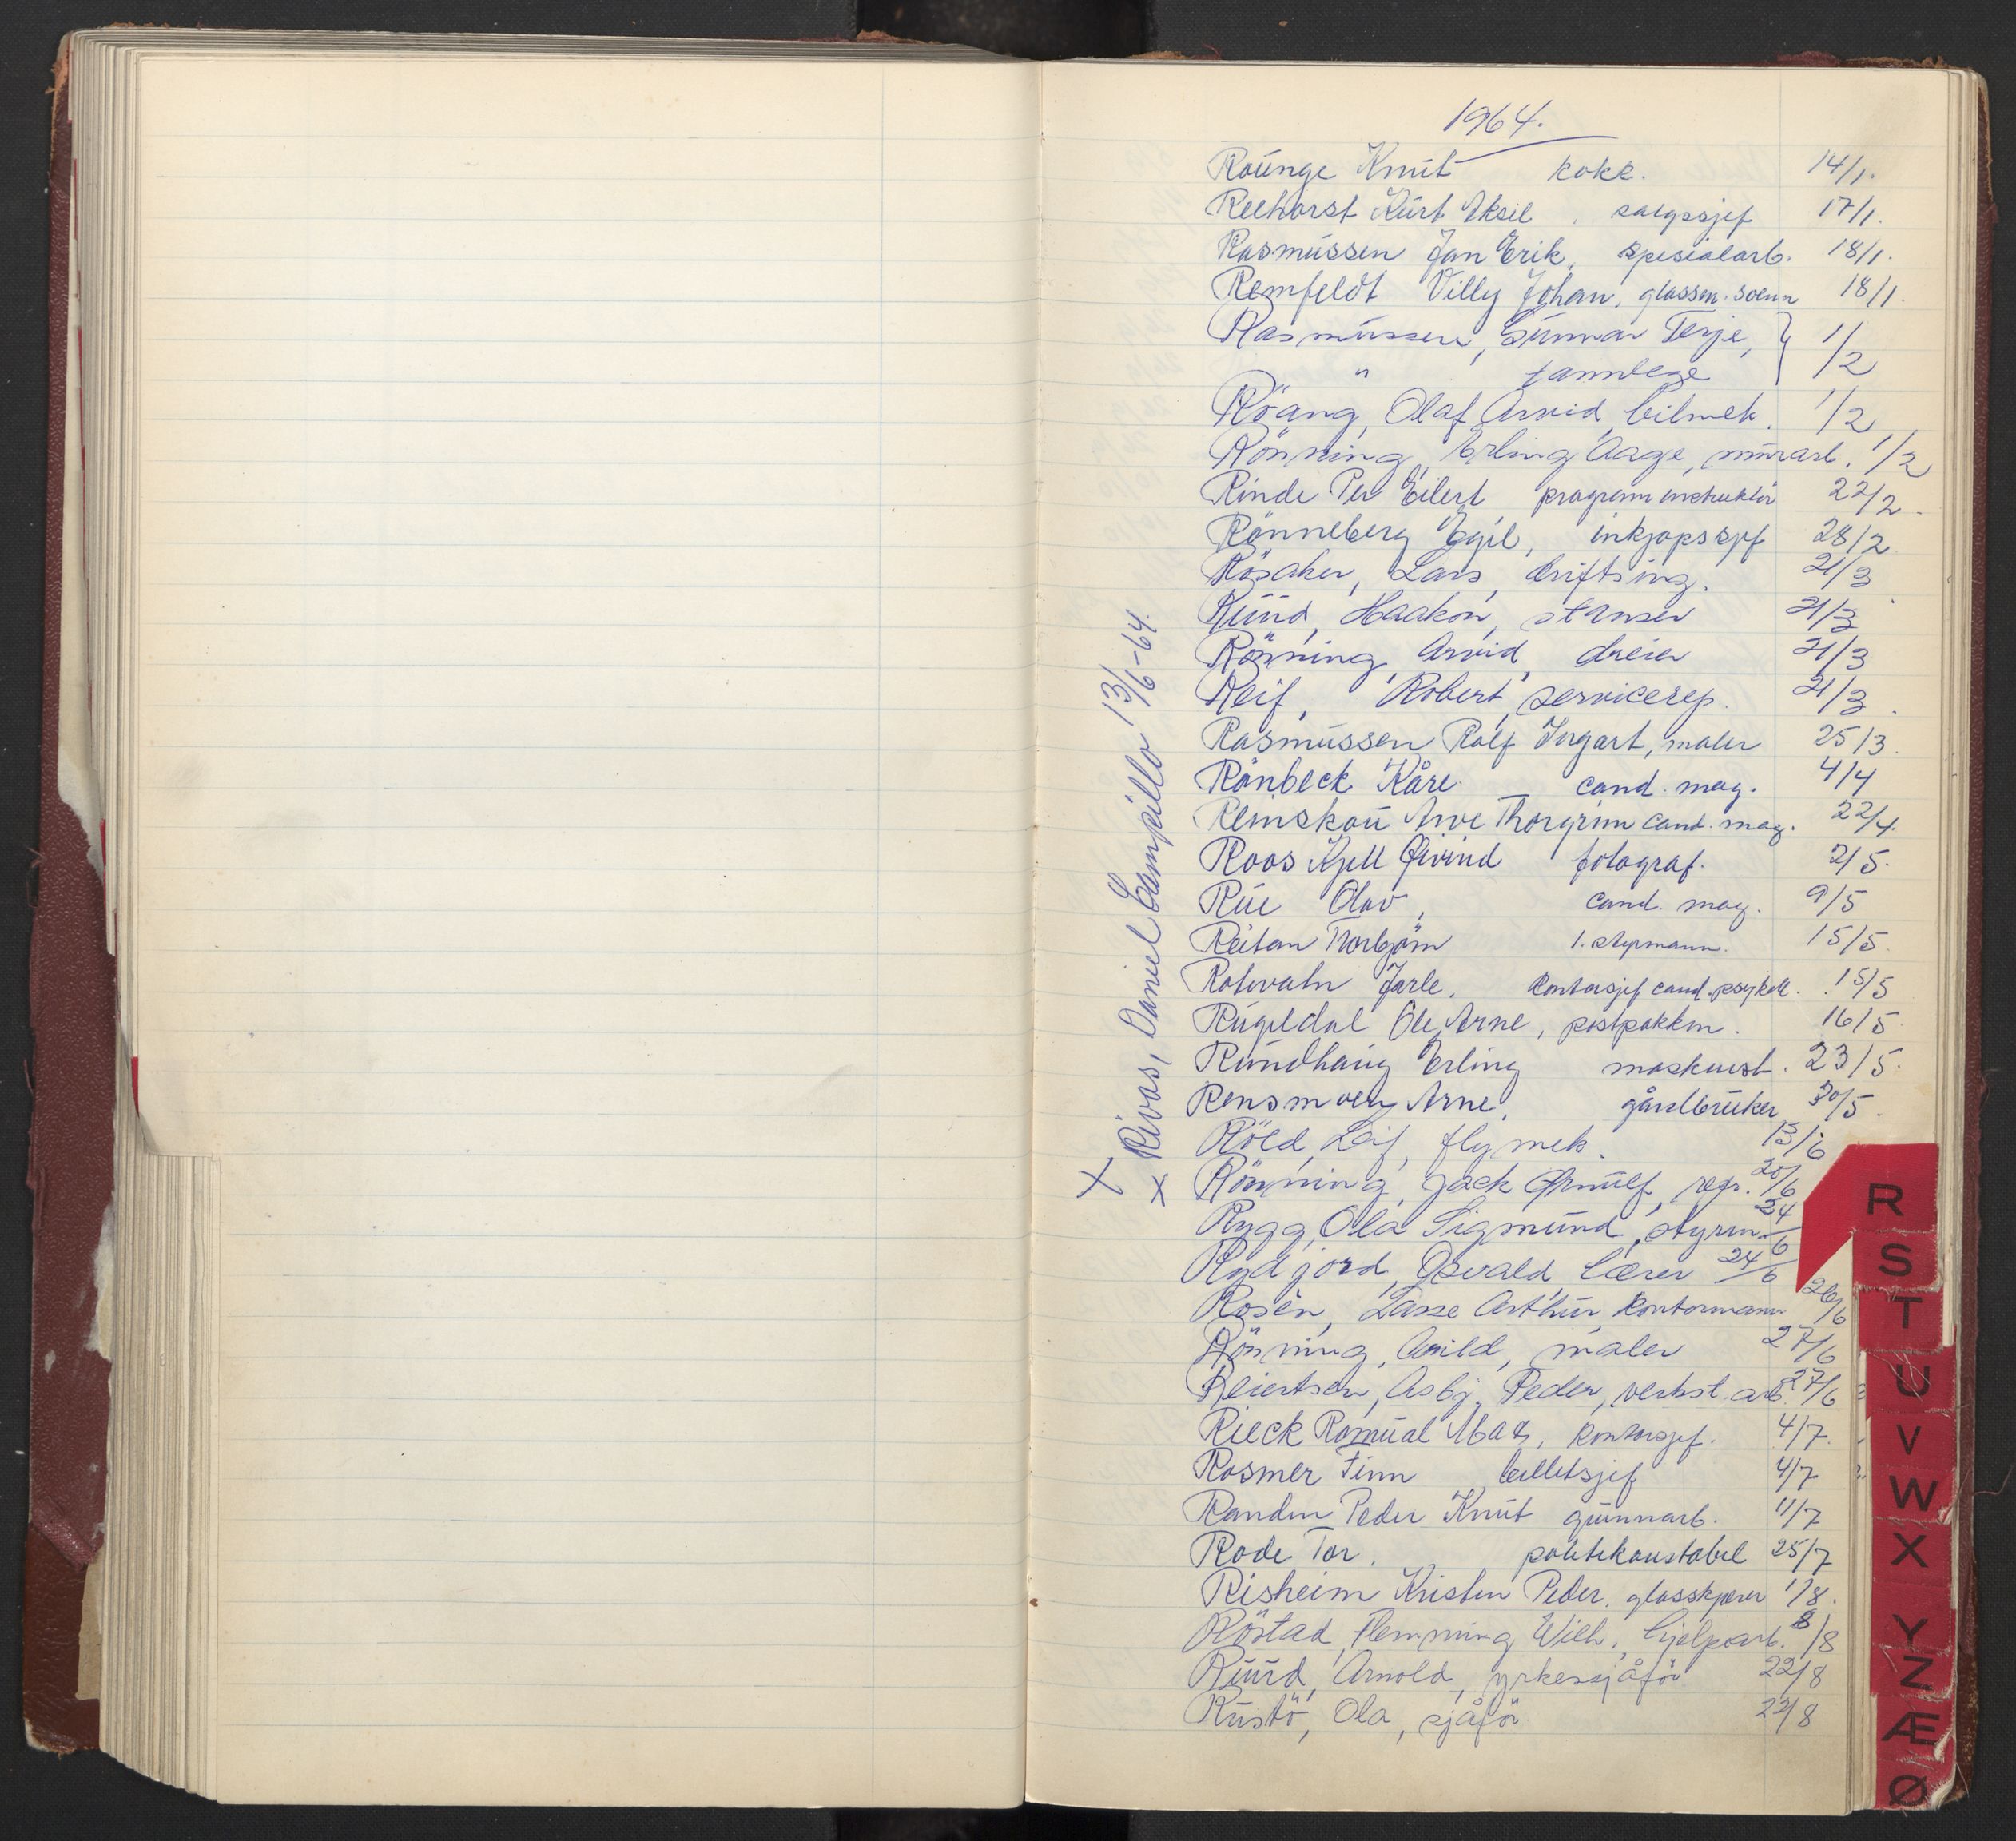 1964.
Raunge Knut kokk. 14/1.
Reehorst Kurt Aksel, salgssjef 17/1.
Rasmussen Jan Erik, spesialarb. 18/1.
Remfeldt Villy Johan, glassm. svenn 18/1.
Rasmussen, Gunnar Terje, } 1/2
" tannlege
Röang, Olaf Arvid, bilmek. 1/2
Rönning, Erling Aage, murarb. 1/2
Rinde Per Eilert programinstruktör 22/2.
Rönneberg Egil, inkjøpssjef 28/2
Rösaker, Lars, driftsing. 21/3
Ruud, Haakon, stanser 21/3
Rönning, Arvid, dreier 21/3
Reif, Robert, servicerep. 21/3.
Rasmussen Rolf Ingart, maler 25/3.
Rönbeck Kåre cand. mag. 4/4
Reinskou Arve Thorgrim cand. mag. 22/4.
Roos Kjell Øivind fotograf. 2/5.
Rue Olav, cand. mag. 9/5
Reitan Thorbjörn 1. styrmann. 15/5.
Rotevatn Jarle, kontorsjef cand. psykol. 15/5
Rugeldal Ole Arne, postpakkm. 16/5.
Rundhaug Erling maskinist. 23/5.
Rensmoen Arne, gårdbruker 30/5.
Röed, Leif, flymek. 13/6
Rönning, Jack Ørnulf, repr. 20/6
Rygg, Ola Sigmund, styrm. 24/6
Rydjord, Osvald, lærer 24/6
Rosèn, Lasse Arthur, kontormann 26/6
Rönning, Arild, maler 27/6
Reiertsen, Asbj. Peder, verkst. arb. 27/6
Rieck Romual Max, kontorsjef. 4/7.
Rosmer Finn billetsjef 4/7
Randen Peder Knut grunnarb. 11/7
Rode Tor, politikonstabel 25/7
Risheim Kristen Peder, glasskjærer 1/8.
Röstad, Flemming Wilh., hjelpearb. 8/8
Ruud, Arnold, yrkessjåför 22/8
Rustö, Ola, sjåför 22/8
X x Rivas, Daniel Campillo 13/6-64.
R
S
T
U
V
W
X
Y
Z
Æ
Ø